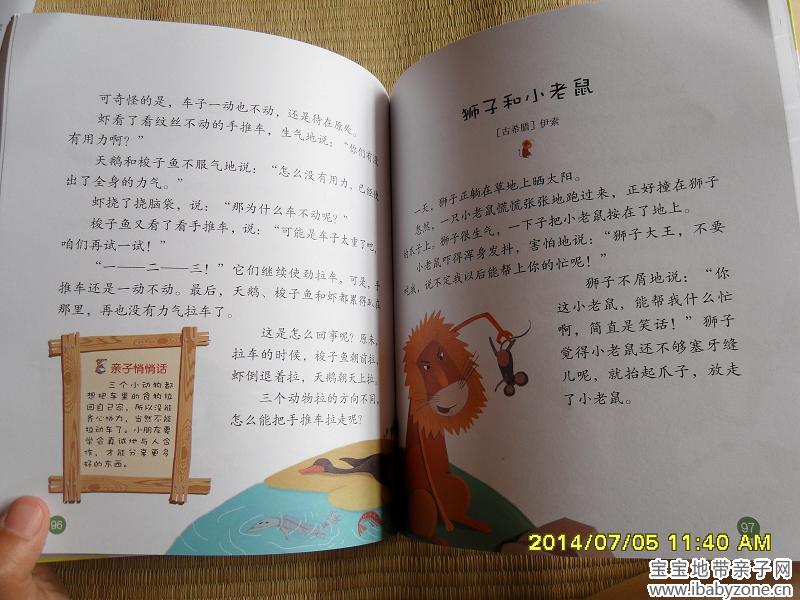 可奇怪的是，车子一动也不动，还是待在原处。
虾看了看纹丝不动的手推车，生气地说：“你们有没
有用力啊？”
天鹅和梭子鱼不服气地说：“怎么没有用力，已经使
出了全身的力气。”
虾挠了挠脑袋，说：“那为什么车不动呢？”
梭子鱼又看了看手推车，说：“可能是车子太重了吧，
咱们再试一试！”
“一——二——三！”它们继续使劲拉车，可是，手
推车还是一动不动。最后，天鹅、梭子鱼和虾都累得趴在
那里，再也没有力气拉车了。
这是怎么回事呢？原来，
拉车的时候，梭子鱼朝前拉，
虾倒退着拉，天鹅朝天上拉，
三个动物拉的方向不同，
怎么能把手推车拉走呢？
亲子悄悄话
三个小动物都
想把车里的食物拉
回自己家，所以没能
齐心协力，当然不能
拉动车了。小朋友要
学会真诚地与人合
作，才能分享更多
好的东西。
96
狮子和小老鼠
［古希腊］伊索
一天，狮子正躺在草地上晒太阳。
忽然，一只小老鼠慌慌张张地跑过来，正好撞在狮子
的爪子上。狮子很生气，一下子把小老鼠按在了地上。
小老鼠吓得浑身发抖，害怕地说：“狮子大王，不要
吃我，说不定我以后能帮上你的忙呢！”
狮子不屑地说：“你
这小老鼠，能帮我什么忙
啊，简直是笑话！”狮子
觉得小老鼠还不够塞牙缝
儿呢，就抬起爪子，放走
了小老鼠。
97
2014/07/05 11:40 AM
宝宝地带亲子网
www.ibabyzone.cn